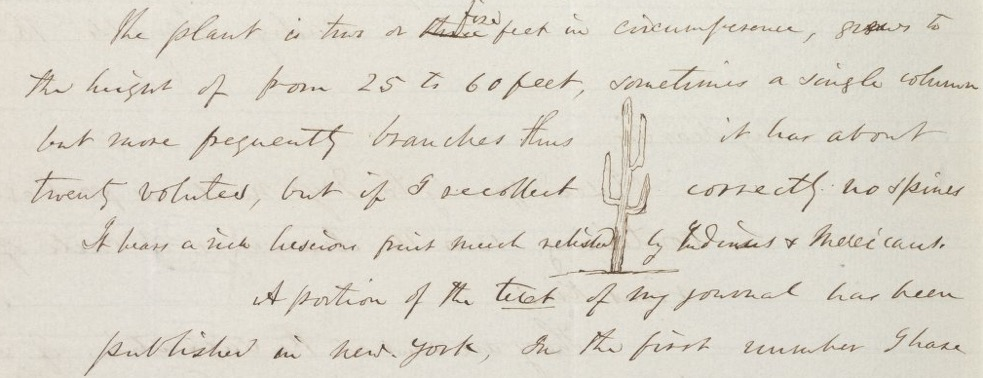 The plant is two or three five feet in circumference, grows to
the height of from 25 to 60 feet, sometimes a single column
but more frequently branches thus it has about
twenty volutes, but if I recollect correctly no spines
It bears a rich luscious fruit much relished by Indians & Mexicans.
A portion of the text of my journal has been
published in new-york, In the first number I have